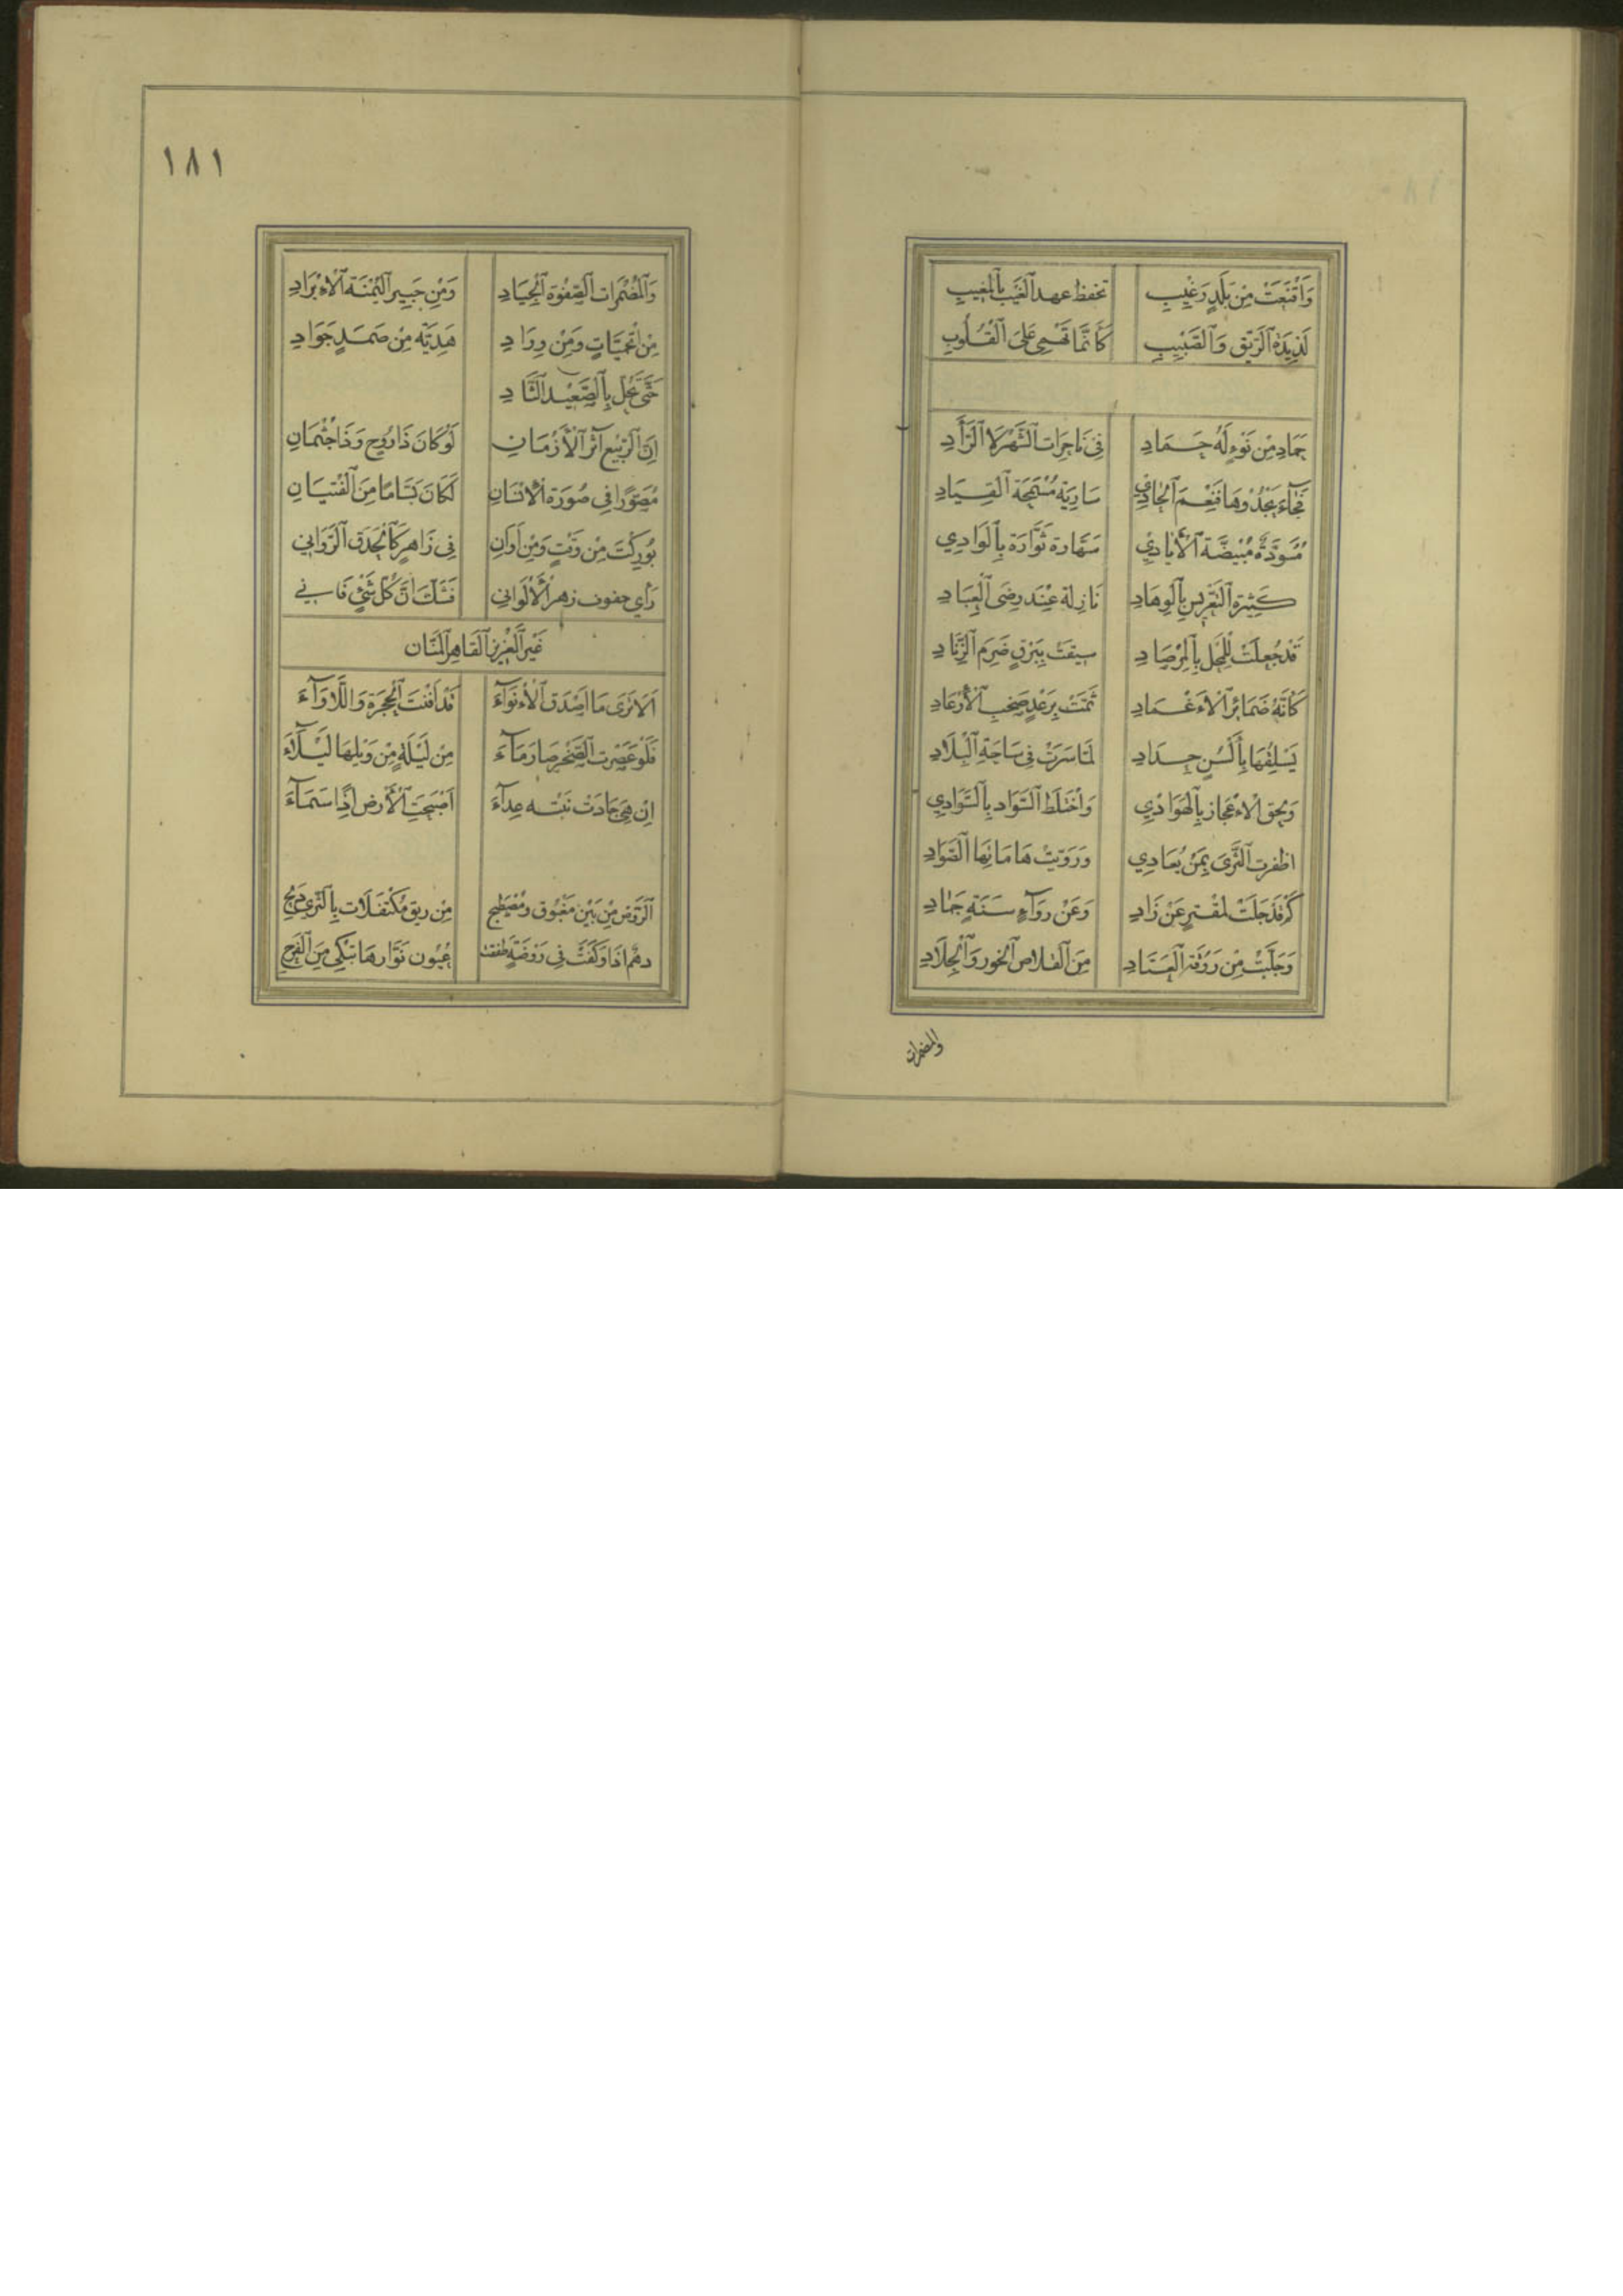 وَاَقْنَعَتْ مِنْ بَلَدٍ رَغِيبِ تحفظ عهد الغَيْبِ بِالْمَغِيبِ
لَذِيذَة اَلرَّيِّق وَالصَّبِيبِ كَاَنَّمَا تَهْمِي عَلَى اَلْقُلُوبِ
حَمَادِ مِنْ نَوْءٍ لَهُ حَمَادِ فِي نَاجِرَات الشَّهْرِ لَا الدَّآدِ
فَجَاءَ يَحْدُوهَا فَنِعْمَ الْحَادِي سَارِيَة مُسْمِحَة القِيَادِ
مُسْوَدَّة مُبْيَضَّة الْأَيَادِي سَهَّارَة نَوَّارَة بِالْوَادِي
كَثِيرَة التَّعْرِيس بِالْوِهَادِ نَازِلَة عِنْدَ رِضَى الْعِبَادِ
قَدْ جُعِلَتْ لِلْمَحْل بِالْمِرْصَادِ سِيقَتْ بِبَرْقٍ ضَرِمِ الزِّنَادِ
كَاَنَّهُ ضَمَائِرُ الْاَغْمَادِ ثُمَّتْ بِرَعْدٍ صَخِبِ الْاَرْعَادِ
يَسْلِقُهَا بِأَلْسُنٍ حِدَادِ لَمَّا سَرَتْ فِي سَاحَة الْبِلَادِ
وَلحق الْاَعْجَاز بِالْهَوَادِي وَاخْتَلَطَ السَّوَاد بِالسَّوَادِي
اظفرت الثَّرَى بِمَنْ يُعَادِي وَرَوَّيت هَامَاتِهَا الصَّوَادِ
كَمْ قَدْ جَلَتْ لمقْترٍ عَنْ زَادِ وَعَنْ رِوَاءٍ سَنَةٍ جَمَادِ
وَجَلَبَتْ مِنْ رَوْقَة الْعَتَادِ مِنَ الْقِلَاص الْخُور وَالْجِلَادِ
والمضمرات
١٨١
وَالْمُضْمَرَات الصَّفْوَة الْجِيَادِ وَمِنْ حَبِير الْيُمْنَة الْاَبْرَادِ
مِنْ اَتْحَمِيَّاتٍ وَمِنْ وِرَادِ هَدِيَّة مِنْ صَمَدٍ جَوَادِ
حَتَّى تَحُل بِالصَّعِيد الثَّادِ
اِنَّ الرَّبِيع اَثَرُ الْاَزْمَانِ لَوْ كَانَ ذَا رُوحٍ وَذَا جُثْمَانِ
مُصَوَّرًا فِي صُورَة الْاِنْسَانِ لَكَانَ بَسَّامًا مِنَ الْفِتْيَانِ
بُورِكْتَ مِنْ وَقْتٍ وَمِنْ اَوَانِ فِي زَاهِرٍ كَالْحَدَق الرَّوَانِي
رَأى جفون زهر الْاَلْوَانِ فَشَكَّ اَنَّ كُلّ شَيْءٍ فَانِي
غَيْر الْعَزِيز القَاهِر الْمَنَّان
اَلَا تَرَى مَا اَصْدَق الْاَنْوَآءَ قَدْ اَفْنَتِ الْحَجْرَة وَاللَّاْوَآءَ
فَلَوْ عَصَرْت الصَّخْر صَارَ مَآءَ مِنْ لَيْلَةٍ مِنْ وَبْلِهَا لَيْلَآءَ
اِنْ هِيَ عَادَتْ نَبْتَه عِدَآءَ اَصْبَحَتِ الْاَرْض اِذًا سَمَآءَ
اَلرَّوْض مِنْ بَيْن مَغْبُوق وَمُصْطَبح مِنْ ريق مُكْتَفَلَات بِالثَّرَى دَلَحِ
دهم اذَا وَكَفَتْ فِي رَوْضَةٍ طفقت عُيُون نَوَّارهَا تَبْكِي مِنَ الْفَرَحِ